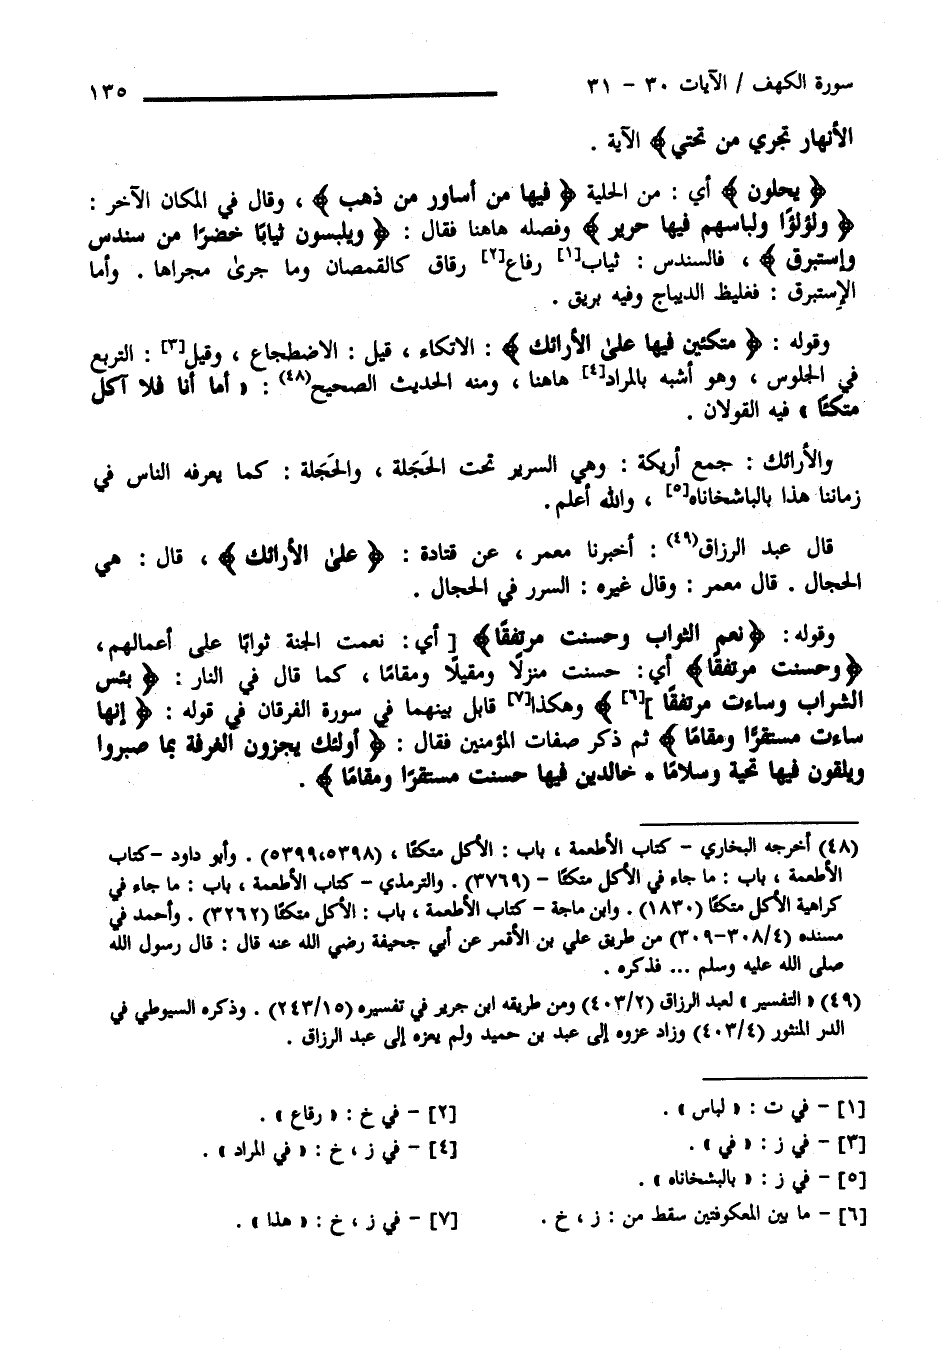 سورة الكهف / الآيات ٣٠ - ٣١ ١٣٥
الأنهار تجري من تحتي﴾ الآية .
﴿ يحلون ﴾ أي : من الحلية ﴿ فيها من أساور من ذهب ﴾ ، وقال في المكان الآخر :
﴿ ولؤلؤًا ولباسهم فيها حرير ﴾ وفصله هاهنا فقال : ﴿ ويلبسون ثيابًا خضرًا من سندس
وإستبرق ﴾ ، فالسندس : ثياب[١] رفاع[٢] رقاق كالقمصان وما جرىٰ مجراها . وأما
الإستبرق : فغليظ الديباج وفيه بريق .
وقوله : ﴿ متكئين فيها علىٰ الأرائك ﴾ : الاتكاء ، قيل : الاضطجاع ، وقيل[٣] : التربع
في الجلوس ، وهو أشبه بالمراد[٤] هاهنا ، ومنه الحديث الصحيح(٤٨) : « أما أنا فلا آكل
متكئًا » فيه القولان .
والأرائك : جمع أريكة : وهي السرير تحت الحَجَلة ، والحَجَلة : كما يعرفه الناس في
زماننا هذا بالباشخاناه[٥] ، والله أعلم.
قال عبد الرزاق(٤٩) : أخبرنا معمر ، عن قتادة : ﴿ علىٰ الأرائك ﴾ ، قال : هي
الحجال . قال معمر : وقال غيره : السرر في الحجال .
وقوله: ﴿نعم الثواب وحسنت مرتفقًا﴾ [ أي: نعمت الجنة ثوابًا على أعمالهم،
﴿وحسنت مرتفقًا﴾ أي: حسنت منزلًا ومقيلًا ومقامًا ، كما قال في النار : ﴿ بئس
الشراب وساءت مرتفقًا ][٦] ﴾ وهكذا[٧] قابل بينهما في سورة الفرقان في قوله : ﴿ إنها
ساءت مستقرًا ومقامًا ﴾ ثم ذكر صفات المؤمنين فقال : ﴿ أولئك يجزون الغرفة بما صبروا
ويلقون فيها تحية وسلامًا * خالدين فيها حسنت مستقرًا ومقامًا ﴾ .
(٤٨) أخرجه البخاري - كتاب الأطعمة ، باب : الأكل متكئًا ، (٥٣٩٨،٥٣٩٩) . وأبو داود -كتاب
الأطعمة ، باب : ما جاء في الأكل متكئًا - (٣٧٦٩) . والترمذي - كتاب الأطعمة ، باب : ما جاء في
كراهية الأكل متكئًا (١٨٣٠) . وابن ماجة - كتاب الأطعمة ، باب : الأكل متكئًا (٣٢٦٢) . وأحمد في
مسنده (٣٠٨/٤-٣٠٩) من طريق علي بن الأقمر عن أبي جحيفة رضي الله عنه قال : قال رسول الله
صلى الله عليه وسلم ... فذكره .
(٤٩) « التفسير » لعبد الرزاق (٤٠٣/٢) ومن طريقه ابن جرير في تفسيره (٢٤٣/١٥) . وذكره السيوطي في
الدر المنثور (٤٠٣/٤) وزاد عزوه إلى عبد بن حميد ولم يعزه إلى عبد الرزاق .
[١] - في ت : « لباس » . [٢] - في خ : « رقاع » .
[٣] - في ز : « في » . [٤] - في ز ، خ : « في المراد » .
[٥] - في ز : « بالبشخاناه » .
[٦] - ما بين المعكوفتين سقط من : ز ، خ . [٧] - في ز ، خ : « هذا » .